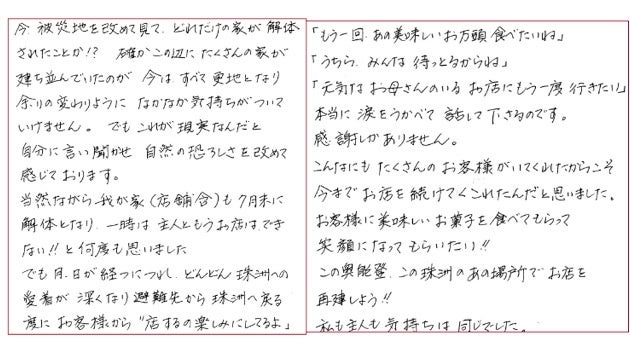 今 被災地を改めて見て、どれだけの家が解体
されたことか!? 確かこの辺にたくさんの家が
建ち並んでいたのが 今は すべて 更地となり
余りの変わりように なかなか気持ちがついて
いけません。 でも これが現実なんだと
自分に言い聞かせ 自然の恐ろしさを改めて
感じております。
当然ながら我が家(店舗含)も7月末に
解体となり、一時は主人ともうお店はでき
ない!! と何度も思いました
でも月、日が経つにつれ、どんどん珠洲への
愛着が 深くなり 避難先から珠洲へ戻る
度に お客様から "店するの楽しみにしてるよ」
「もう一回、あの美味しいお万頭 食べたいね」
「うちら、みんな 待っとるからね」
「元気な お母さんのいる お店にもう一度 行きたい!」
本当に 涙をうかべて 話して下さるのです。
感謝しかありません。
こんなにも たくさんの お客様がいてくれたからこそ
今まで お店を続けてくこれたんだと思いました。
お客様に美味しい お菓子を食べてもらって
笑顔になって もらいたい!!
この奥能登、この珠洲のあの場所で お店を
再建しよう!!
私も主人も 気持ちは 同じでした。